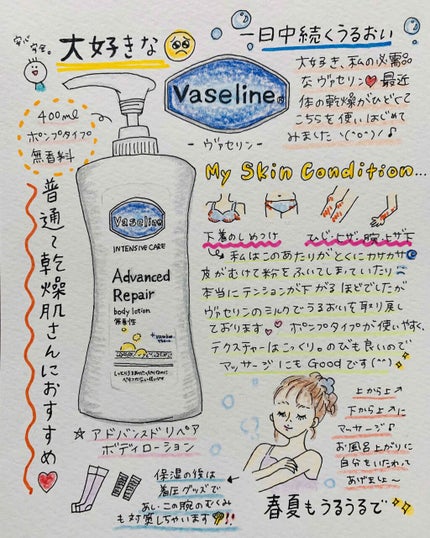 安心安全。
大好きな
一日中続くうるおい
400ml
ポンプタイプ
無香料
Vaseline
- ヴァセリン -
大好き、私の必需品
なヴァセリン 最近
体の乾燥がひどくて
こちらを使いはじめて
みました\(^o^)/♪
My Skin Condition...
下着のしめつけ
ひじ上ザ・腕上ザ下
私はこのあたりがとくにカサカサ
皮がむけて粉をふいてしまっていたり
本当にテンションが下がるほどでしたが
ヴァセリンのミルクでうるおいを取り戻し
ております ポンプタイプが使いやすく、
テクスチャーはこっくり。のびも良いので
マッサージにもGoodです(^^)
普通〜乾燥肌さんにおすすめ
Vaseline
INTENSIVE CARE
Advanced
Repair
body lotion
無香性
☆アドバンスドリペア
ボディローション
上から上へ
下から上へに
マッサージ♪
お風呂上がりに
自分をいたわって
あげましょ〜
保湿の後は
着圧グッズで
あし・この腕のむくみ
も対策しちゃいます!!
春夏もうるうるで